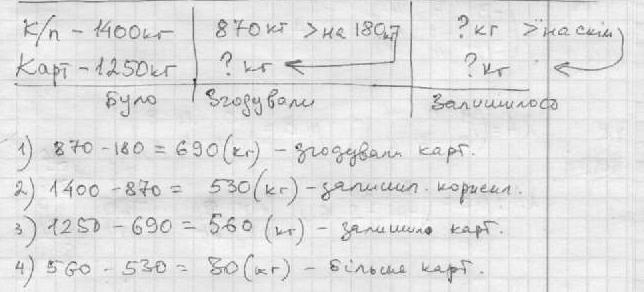 К/п - 1400кг 870кг > на 180кг ? кг > на скільки
Карт - 1250кг ? кг ? кг
Було Згодували Залишилось
1) 870 - 180 = 690 (кг) - згодували карт.
2) 1400 - 870 = 530 (кг) - залишил. кормсил.
3) 1250 - 690 = 560 (кг) - залишило карт.
4) 560 - 530 = 30 (кг) - більше карт.